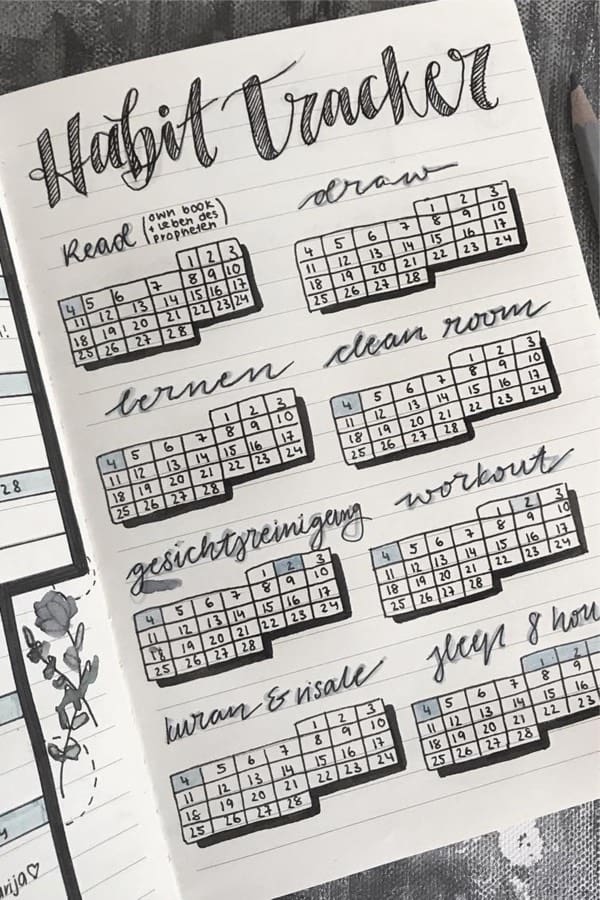 Habit Tracker
Read (own book + Leben des Propheten)
1 2 3
4 5 6 7 8 9 10
11 12 13 14 15 16 17
18 19 20 21 22 23 24
25 26 27 28
draw
1 2 3
4 5 6 7 8 9 10
11 12 13 14 15 16 17
18 19 20 21 22 23 24
25 26 27 28
lernen
1 2 3
4 5 6 7 8 9 10
11 12 13 14 15 16 17
18 19 20 21 22 23 24
25 26 27 28
clean room
1 2 3
4 5 6 7 8 9 10
11 12 13 14 15 16 17
18 19 20 21 22 23 24
25 26 27 28
gesichtsreinigung
1 2 3
4 5 6 7 8 9 10
11 12 13 14 15 16 17
18 19 20 21 22 23 24
25 26 27 28
workout
1 2 3
4 5 6 7 8 9 10
11 12 13 14 15 16 17
18 19 20 21 22 23 24
25 26 27 28
kuran & risale
1 2 3
4 5 6 7 8 9 10
11 12 13 14 15 16 17
18 19 20 21 22 23 24
25 26 27 28
sleep 8 hou
1 2
4 5 6 7 8 9
11 12 13 14 15 16
18 19 20 21 22 23
25 26 27 28
28
arija♡